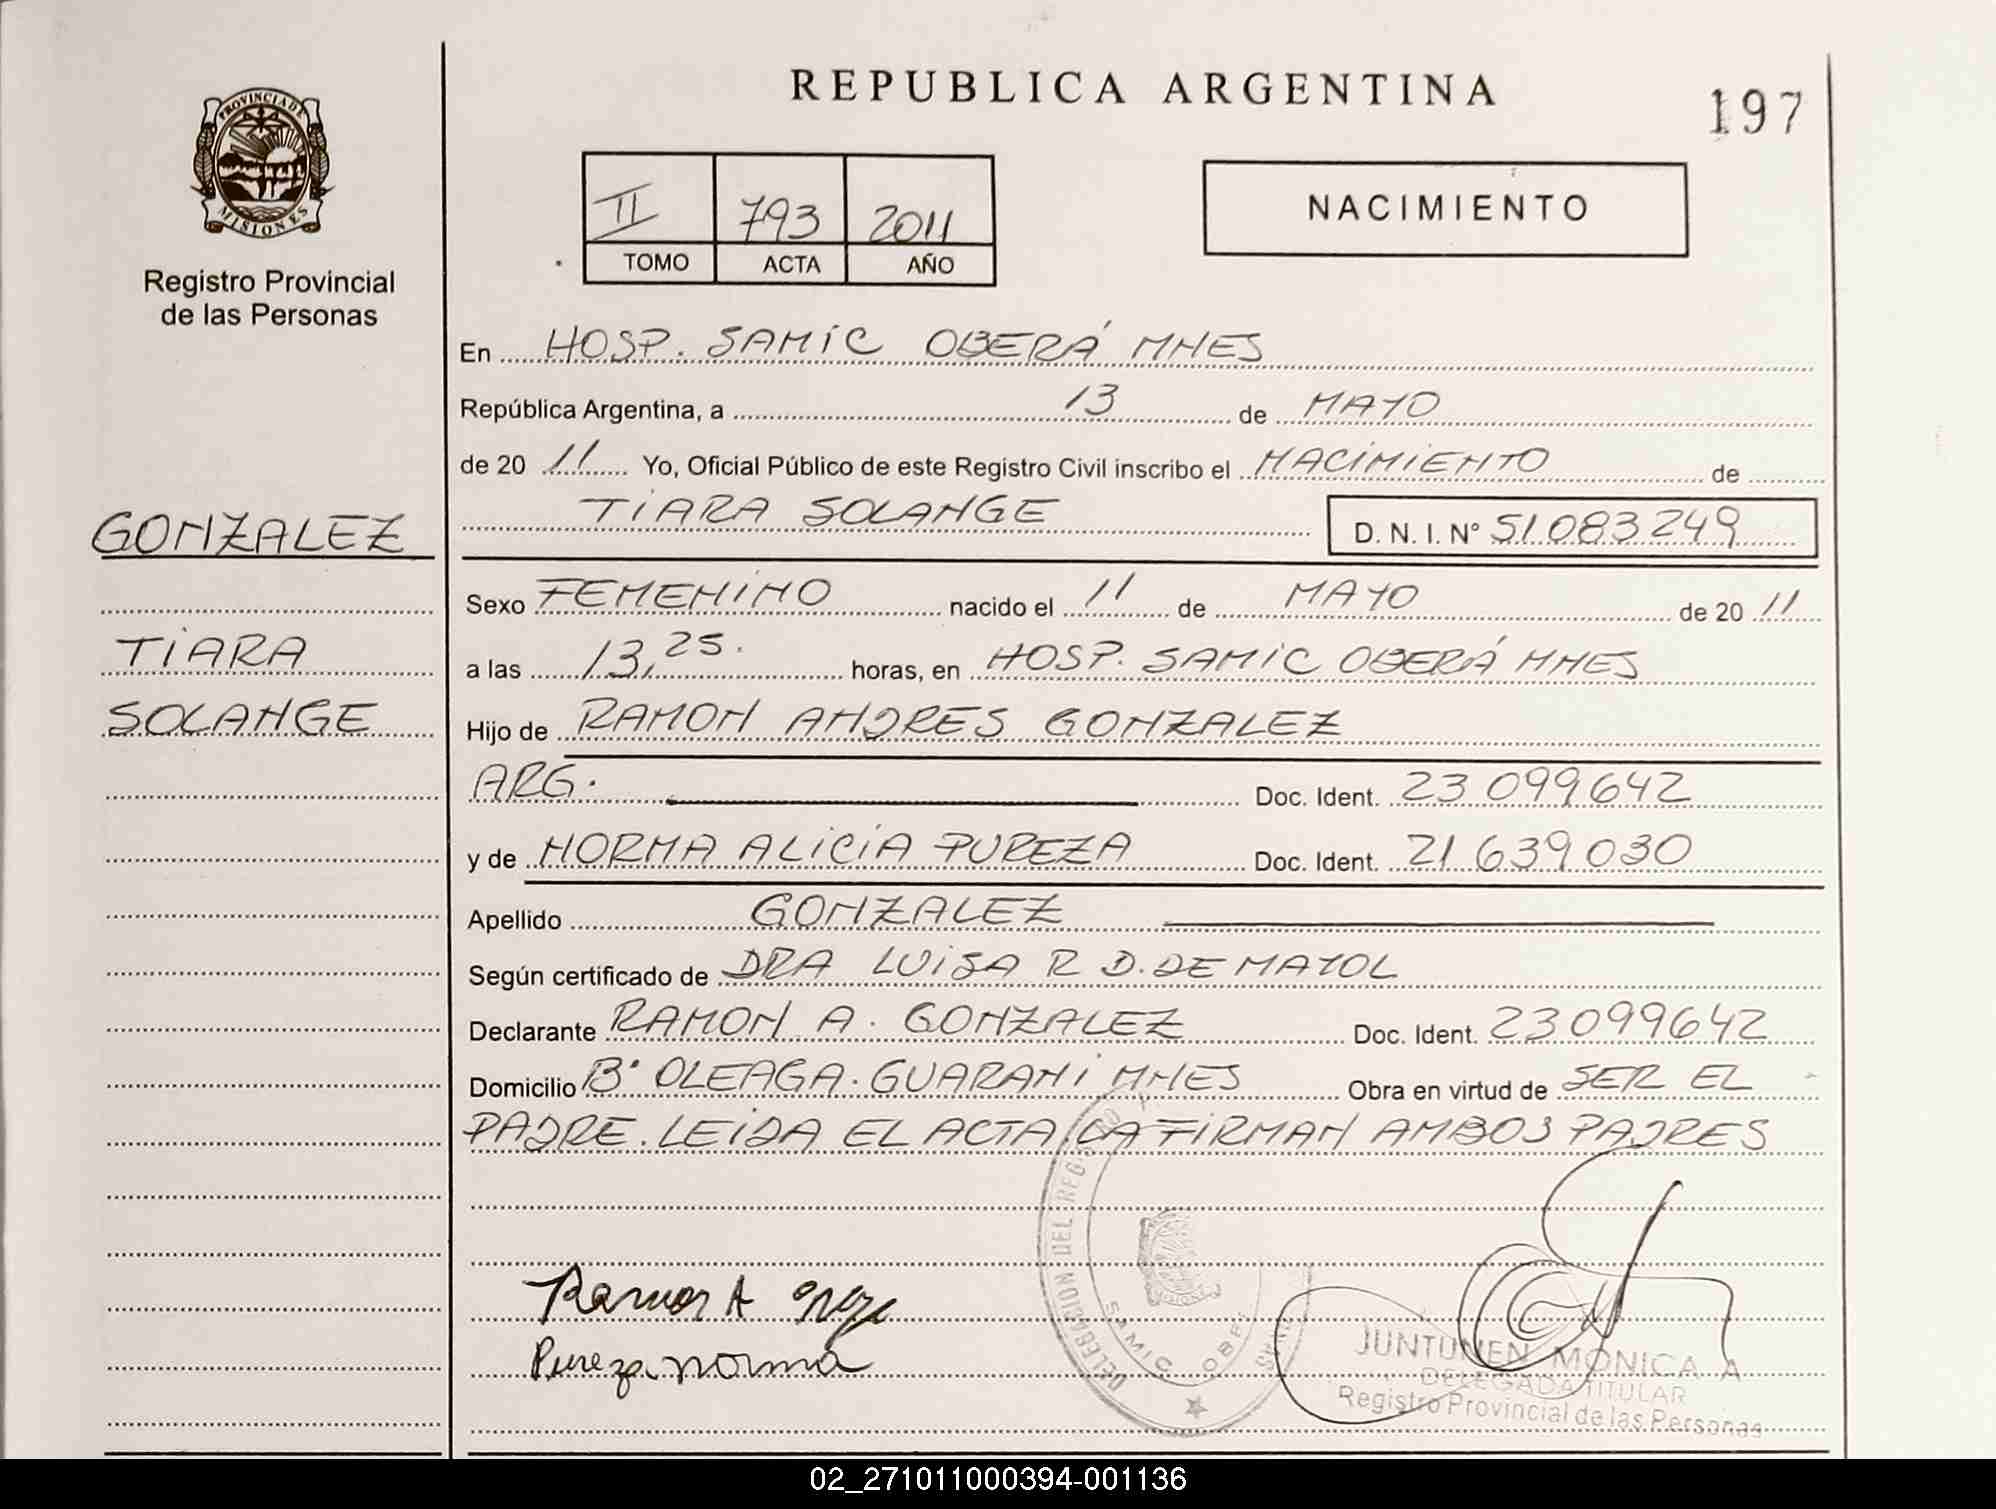 REPUBLICA ARGENTINA
197
PROVINCIA DE MISIONES
Registro Provincial
de las Personas
II 793 2011
TOMO ACTA AÑO
NACIMIENTO
En HOSP. SAMIC OBERÁ MNES
República Argentina, a 13 de MAYO
de 20 11 Yo, Oficial Público de este Registro Civil inscribo el NACIMIENTO de
TIARA SOLANGE D. N. I. N° 51.083.249
GONZALEZ
TIARA
SOLANGE
Sexo FEMENINO nacido el 11 de MAYO de 20 11
a las 13,25. horas, en HOSP. SAMIC OBERÁ MNES
Hijo de RAMON ANDRES GONZALEZ
ARG. Doc. Ident. 23.099.642
y de NORMA ALICIA PUREZA Doc. Ident. 21.639.030
Apellido GONZALEZ
Según certificado de DRA LUISA R D. DE MAYOL
Declarante RAMON A. GONZALEZ Doc. Ident. 23.099.642
Domicilio B° OLEAGA. GUARANI MNES Obra en virtud de SER EL
PADRE. LEIDA EL ACTA LA FIRMAN AMBOS PADRES
Ramon A
Pureza norma
DELEGACION DEL REG
SAMIC OBE
JUNTUNEN MONICA A
DELEGADA TITULAR
Registro Provincial de las Personas
02_271011000394-001136